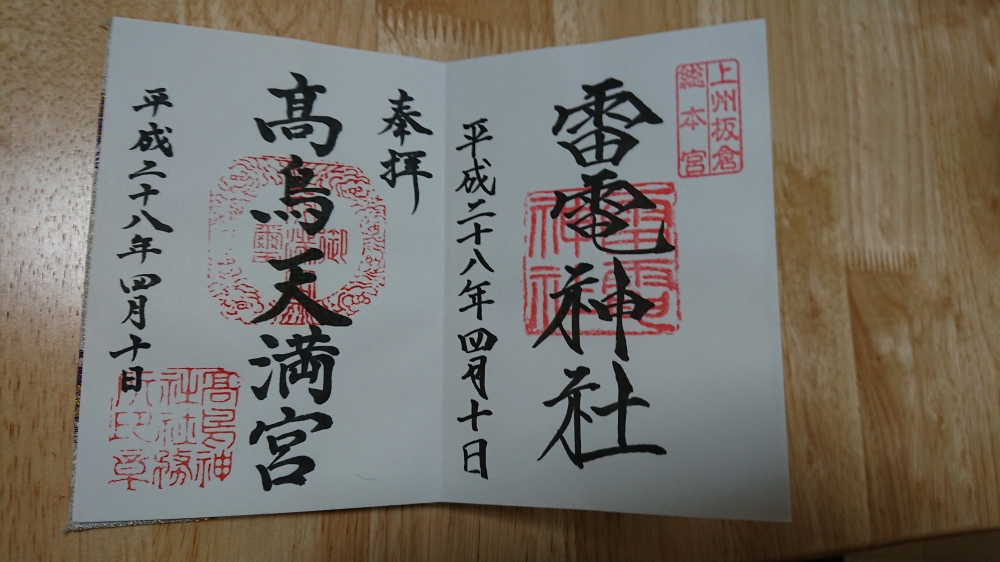 上州板倉
総本宮
雷電神社
雷電
神社
平成二十八年四月十日
奉拝
高鳥天満宮
平成二十八年四月十日
高鳥神
社社務
所之章